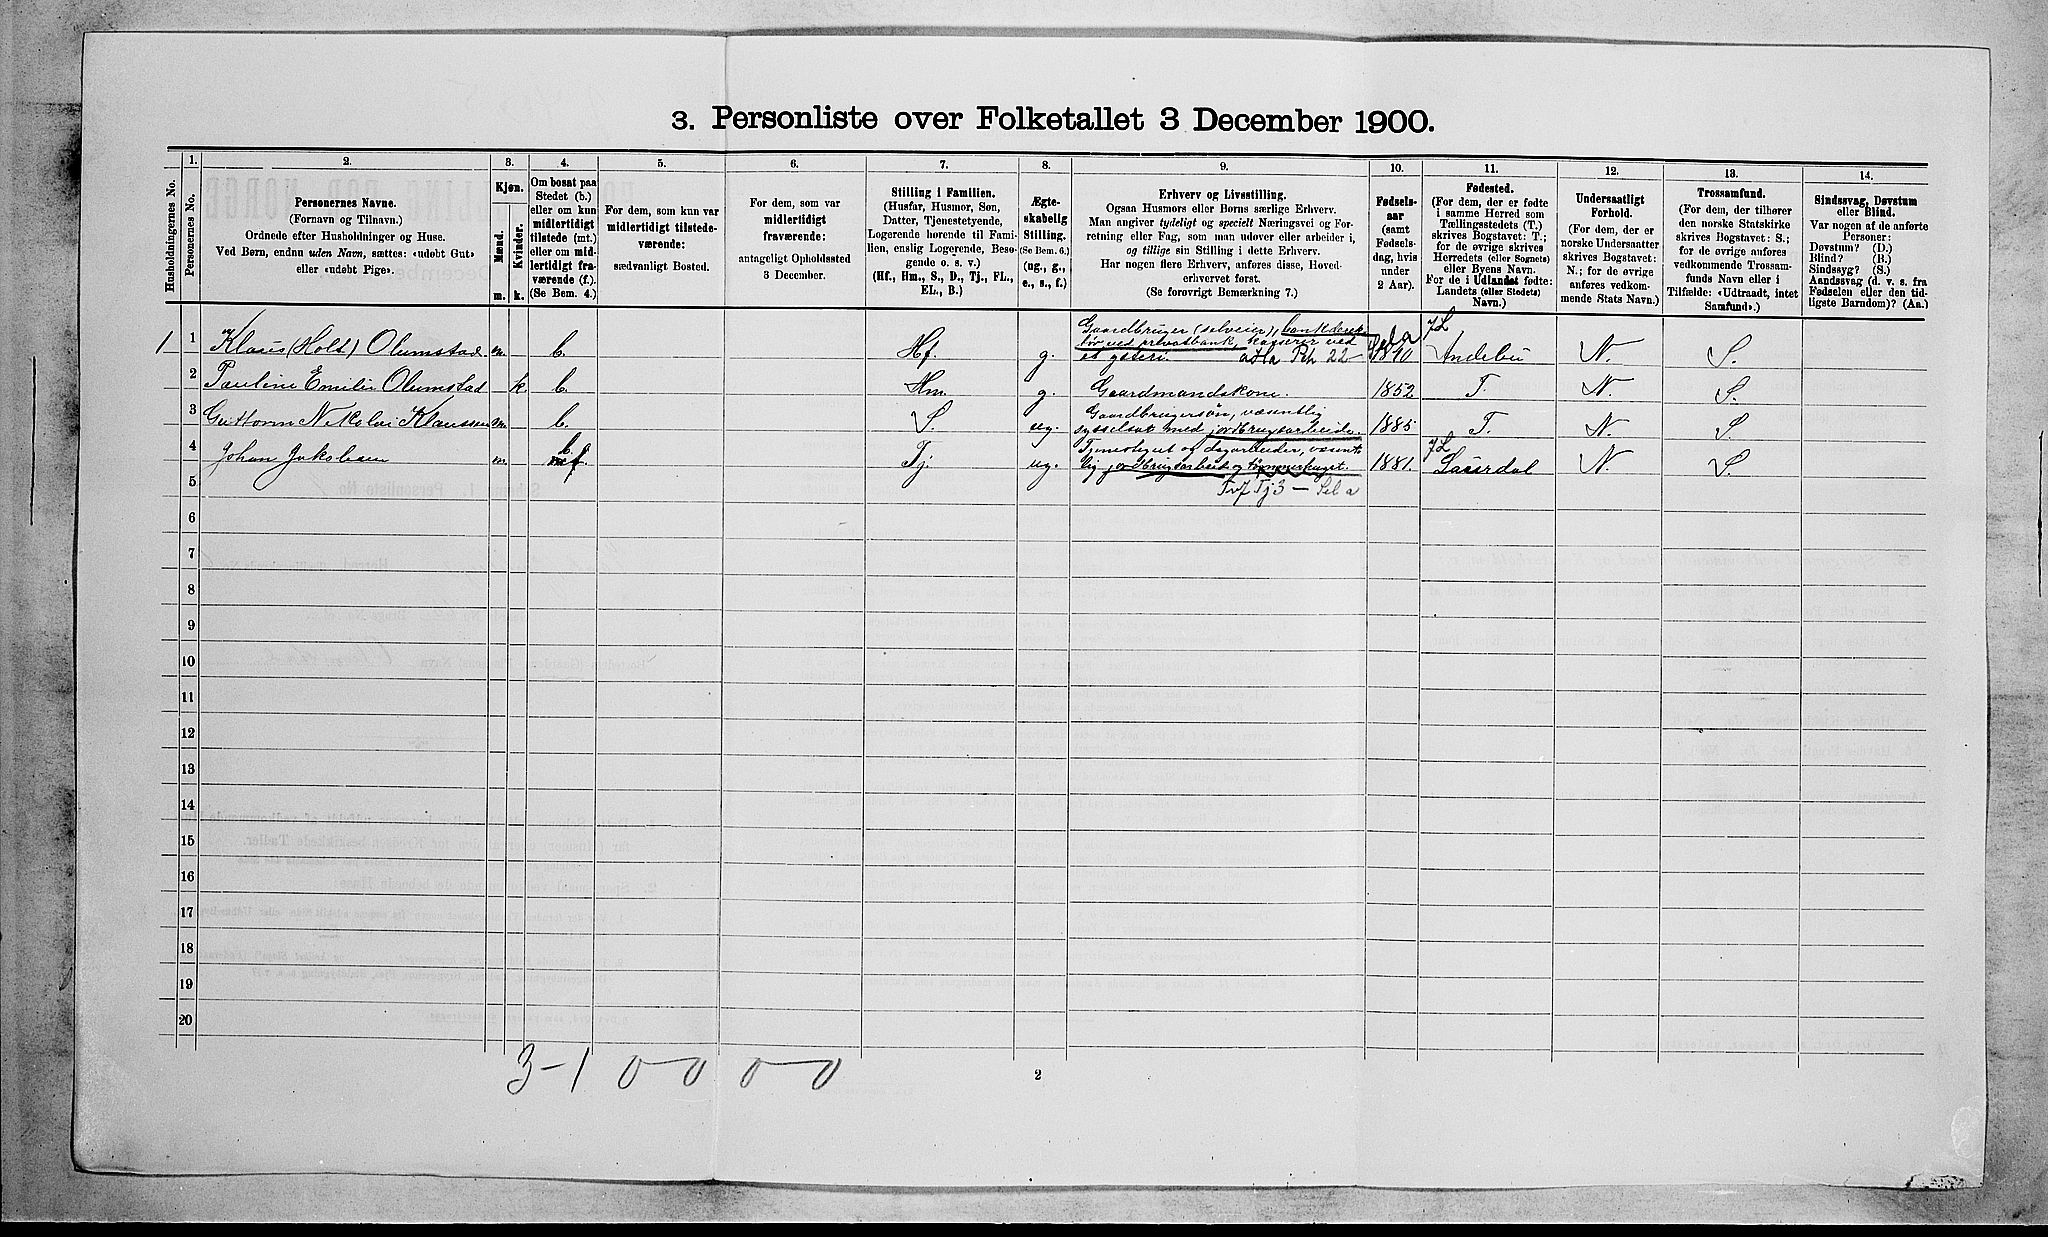 3. Personliste over Folketallet 3 December 1900.
1. 2. 3. 4. 5. 6. 7. 8. 9. 10. 11. 12. 13. 14.
Husholdningernes No.
Personernes No.
Personernes Navne.
(Fornavn og Tilnavn.)
Ordnede efter Husholdninger og Huse.
Ved Børn, endnu uden Navn, sættes: «udøbt Gut»
eller «udøbt Pige».
Kjøn.
Mænd.
Kvinder.
m. k.
Om bosat paa
Stedet (b.)
eller om kun
midlertidigt
tilstede (mt.)
eller om mid-
lertidigt fra-
værende (f.).
(Se Bem. 4.)
For dem, som kun var
midlertidigt tilstede-
værende:
sædvanligt Bosted.
For dem, som var
midlertidigt
fraværende:
antageligt Opholdssted
3 December.
Stilling i Familien.
(Husfar, Husmor, Søn,
Datter, Tjenestetyende,
Logerende hørende til Fami-
lien, enslig Logerende, Besø-
gende o. s. v.)
(Hf., Hm., S., D., Tj., FL.,
EL., B.)
Ægte-
skabelig
Stilling.
(Se Bem. 6.)
(ug., g.,
e., s., f.)
Erhverv og Livsstilling.
Ogsaa Husmors eller Børns særlige Erhverv.
Man angiver tydeligt og specielt Næringsvei og For-
retning eller Fag, som man udøver eller arbeider i,
og tillige sin Stilling i dette Erhverv.
Har nogen flere Erhverv, anføres disse, Hoved-
erhvervet først.
(Se forøvrigt Bemærkning 7.)
Fødsels-
aar
(samt
Fødsels-
dag, hvis
under
2 Aar).
Fødested.
(For dem, der er fødte
i samme Herred som
Tællingsstedets (T.)
skrives Bogstavet: T.;
for de øvrige skrives
Herredets (eller Sognets)
eller Byens Navn.
For de i Udlandet fødte:
Landets (eller Stedets)
Navn.)
Undersaatligt
Forhold.
(For dem, der er
norske Undersaatter
skrives Bogstavet:
N.; for de øvrige
anføres vedkom-
mende Stats Navn.)
Trossamfund.
(For dem, der tilhører
den norske Statskirke
skrives Bogstavet: S.;
for de øvrige anføres
vedkommende Trossam-
funds Navn eller i
Tilfælde: «Udtraadt, intet
Samfund».)
Sindssvag, Døvstum
eller Blind.
Var nogen af de anførte
Personer:
Døvstum? (D.)
Blind? (B.)
Sindssyg? (S.)
Aandssvag (d. v. s. fra
Fødselen eller den tid-
ligste Barndom)? (Aa.)
1 1 Klaus (Holt) Olumstad m. b. Hf. g. Gaardbruger (selveier), bankdirek-
tør ved privatbank, kasserer ved
et ysteri. 1840 Andebu N. S.
2 Pauline Emilie Olumstad k b. Hm. g. Gaardmandskone. 1852 T. N. S.
3 Guttorm Nikolai Klaussen m. b. S. ug. Gaardbrugersøn, væsentlig
sysselsat med jordbrugsarbeide. 1885 T. N. S.
4 Johan Jakobsen m. b. Tj. ug. Tjenestegut og dagarbeider, væsent-
lig jordbrugsarbeid og tømmerhugst. 1881. Saurdal N. S.
5
6
7
8
9
10
11
12
13
14
15
16
17
18
19
20
3-1 0-0 0-0
2